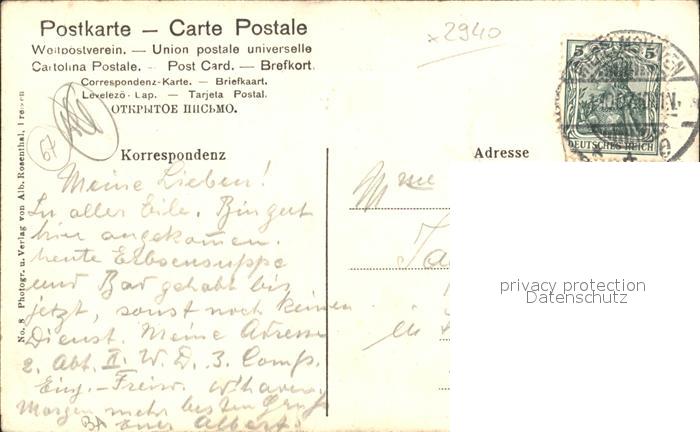 Postkarte — Carte Postale
Weltpostverein. — Union postale universelle
Cartolina Postale. — Post Card. — Brefkort.
Correspondenz-Karte. — Briefkaart.
Levelező-Lap. — Tarjeta Postal.
ОТКРЫТОЕ ПИСЬМО.
x2940
67
5 5
DEUTSCHES REICH
Korrespondenz
Adresse
Meine Lieben!
In aller Eile. Bin gut
hier angekommen.
heute Erbsensuppe
und Bad gehabt bis
jetzt, sonst noch keinen
Dienst. Meine Adresse
2. Abt. II. W. D. 3. Comp.
Einj.-Freiw. W'haven.
Morgen mehr besten Gruß
Euer Albert.
Mme
in
No. 8 Photogr. u. Verlag von Alb. Rosenthal,
privacy protection
Datenschutz